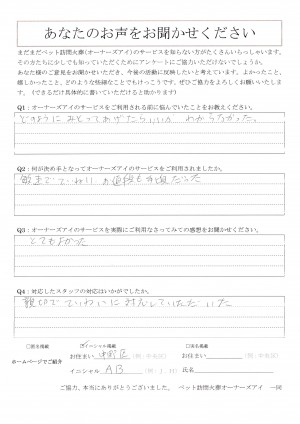 あなたのお声をお聞かせください
まだまだペット訪問火葬（オーナーズアイ）のサービスを知らない方がたくさんいらっしゃいます。
その方たちに少しでも知っていただくためにアンケートにご協力いただけないでしょうか。
あなた様のご意見をお聞かせいただき、今後の活動に反映したいと考えています。よかったこと、
嬉しかったこと、どのような些細なことでもけっこうです。ぜひご協力をよろしくお願いいたします。（できるだけ具体的に書いていただけると助かります）
Q1：オーナーズアイのサービスをご利用される前に悩んでいたことをお教えください。
どのようにみとってあげたらいいか わからなかった。
Q2：何が決め手となってオーナーズアイのサービスをご利用されましたか。
ていねい お値段も手頃だった
Q3：オーナーズアイのサービスを実際にご利用なさってみての感想をお聞かせください。
とてもよかった
Q4：対応したスタッフの対応はいかがでしたか。
親切でていねいに対応していただいた
ホームページでご紹介
□匿名掲載 ☑イニシャル掲載 □実名掲載
お住まい（例：中央区） お住まい（例：中央区）
イニシャル AB（例：J．H） 氏名
ご協力、本当にありがとうございました。 ペット訪問火葬オーナーズアイ 一同